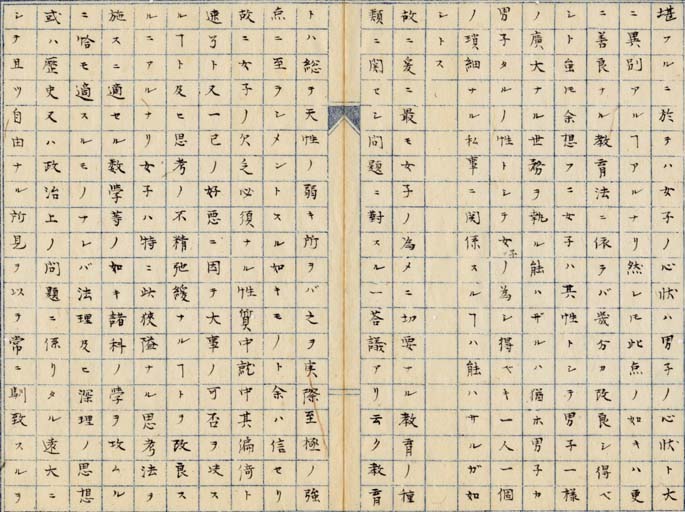 堪フルニ於テハ女子ノ心状ハ男子ノ心状ト大
ニ異別アルヿナリ然レ𪜈此点ノ如キハ更
ニ善良ナル教育法ニ依ラバ幾分カ改良シ得ベ
シト雖モ余想フニ女子ハ其性トシテ男子一様
ノ廣大ナル世務ヲ執ル能ハザルハ猶ホ男子カ
男子タルノ性トシテ女子ノ為シ得ヘキ一人一個
ノ瑣細ナル私事ニ関係スルヿ能ハサルガ如
シトス
故ニ爰ニ最モ女子ノ為メニ切要ナル教育ノ種
類ニ関セシ問題ニ対スル一答議アリ云ク教育
トハ総テ天性ノ弱キ所ヲバ之ヲ実際至極ノ強
点ニ至ラシメントスル如キモノト余ハ信セリ
故ニ女子ノ欠乏必須ナル性質中就中其偏倚ト
速了ト又一己ノ好悪ニ因テ大事ノ可否ヲ决ス
ルヿト及ヒ思考ノ不精弛緩ナルヿトヲ改良ス
ルニアルナリ女子ハ特ニ此狭隘ナル思考法ヲ
施スニ適セル数學等ノ如キ諸科ノ學ヲ攻ムル
ニ恰モ適スルモノナレバ法理及ヒ深理ノ思想
或ハ歴史又ハ政治上ノ問題ニ係リタル遠大ニ
シテ且ツ自由ナル所見ヲ以テ常ニ馴致スルヲ